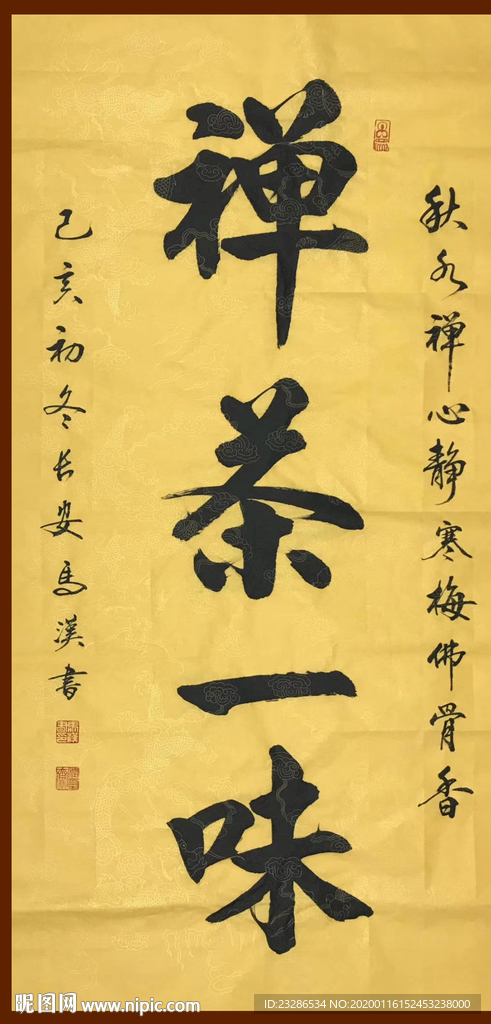 秋水禅心静寒梅佛骨香
禅茶一味
己亥初冬长安马汉书
昵图网 www.nipic.com
ID:23286534 NO:20200116152453238000